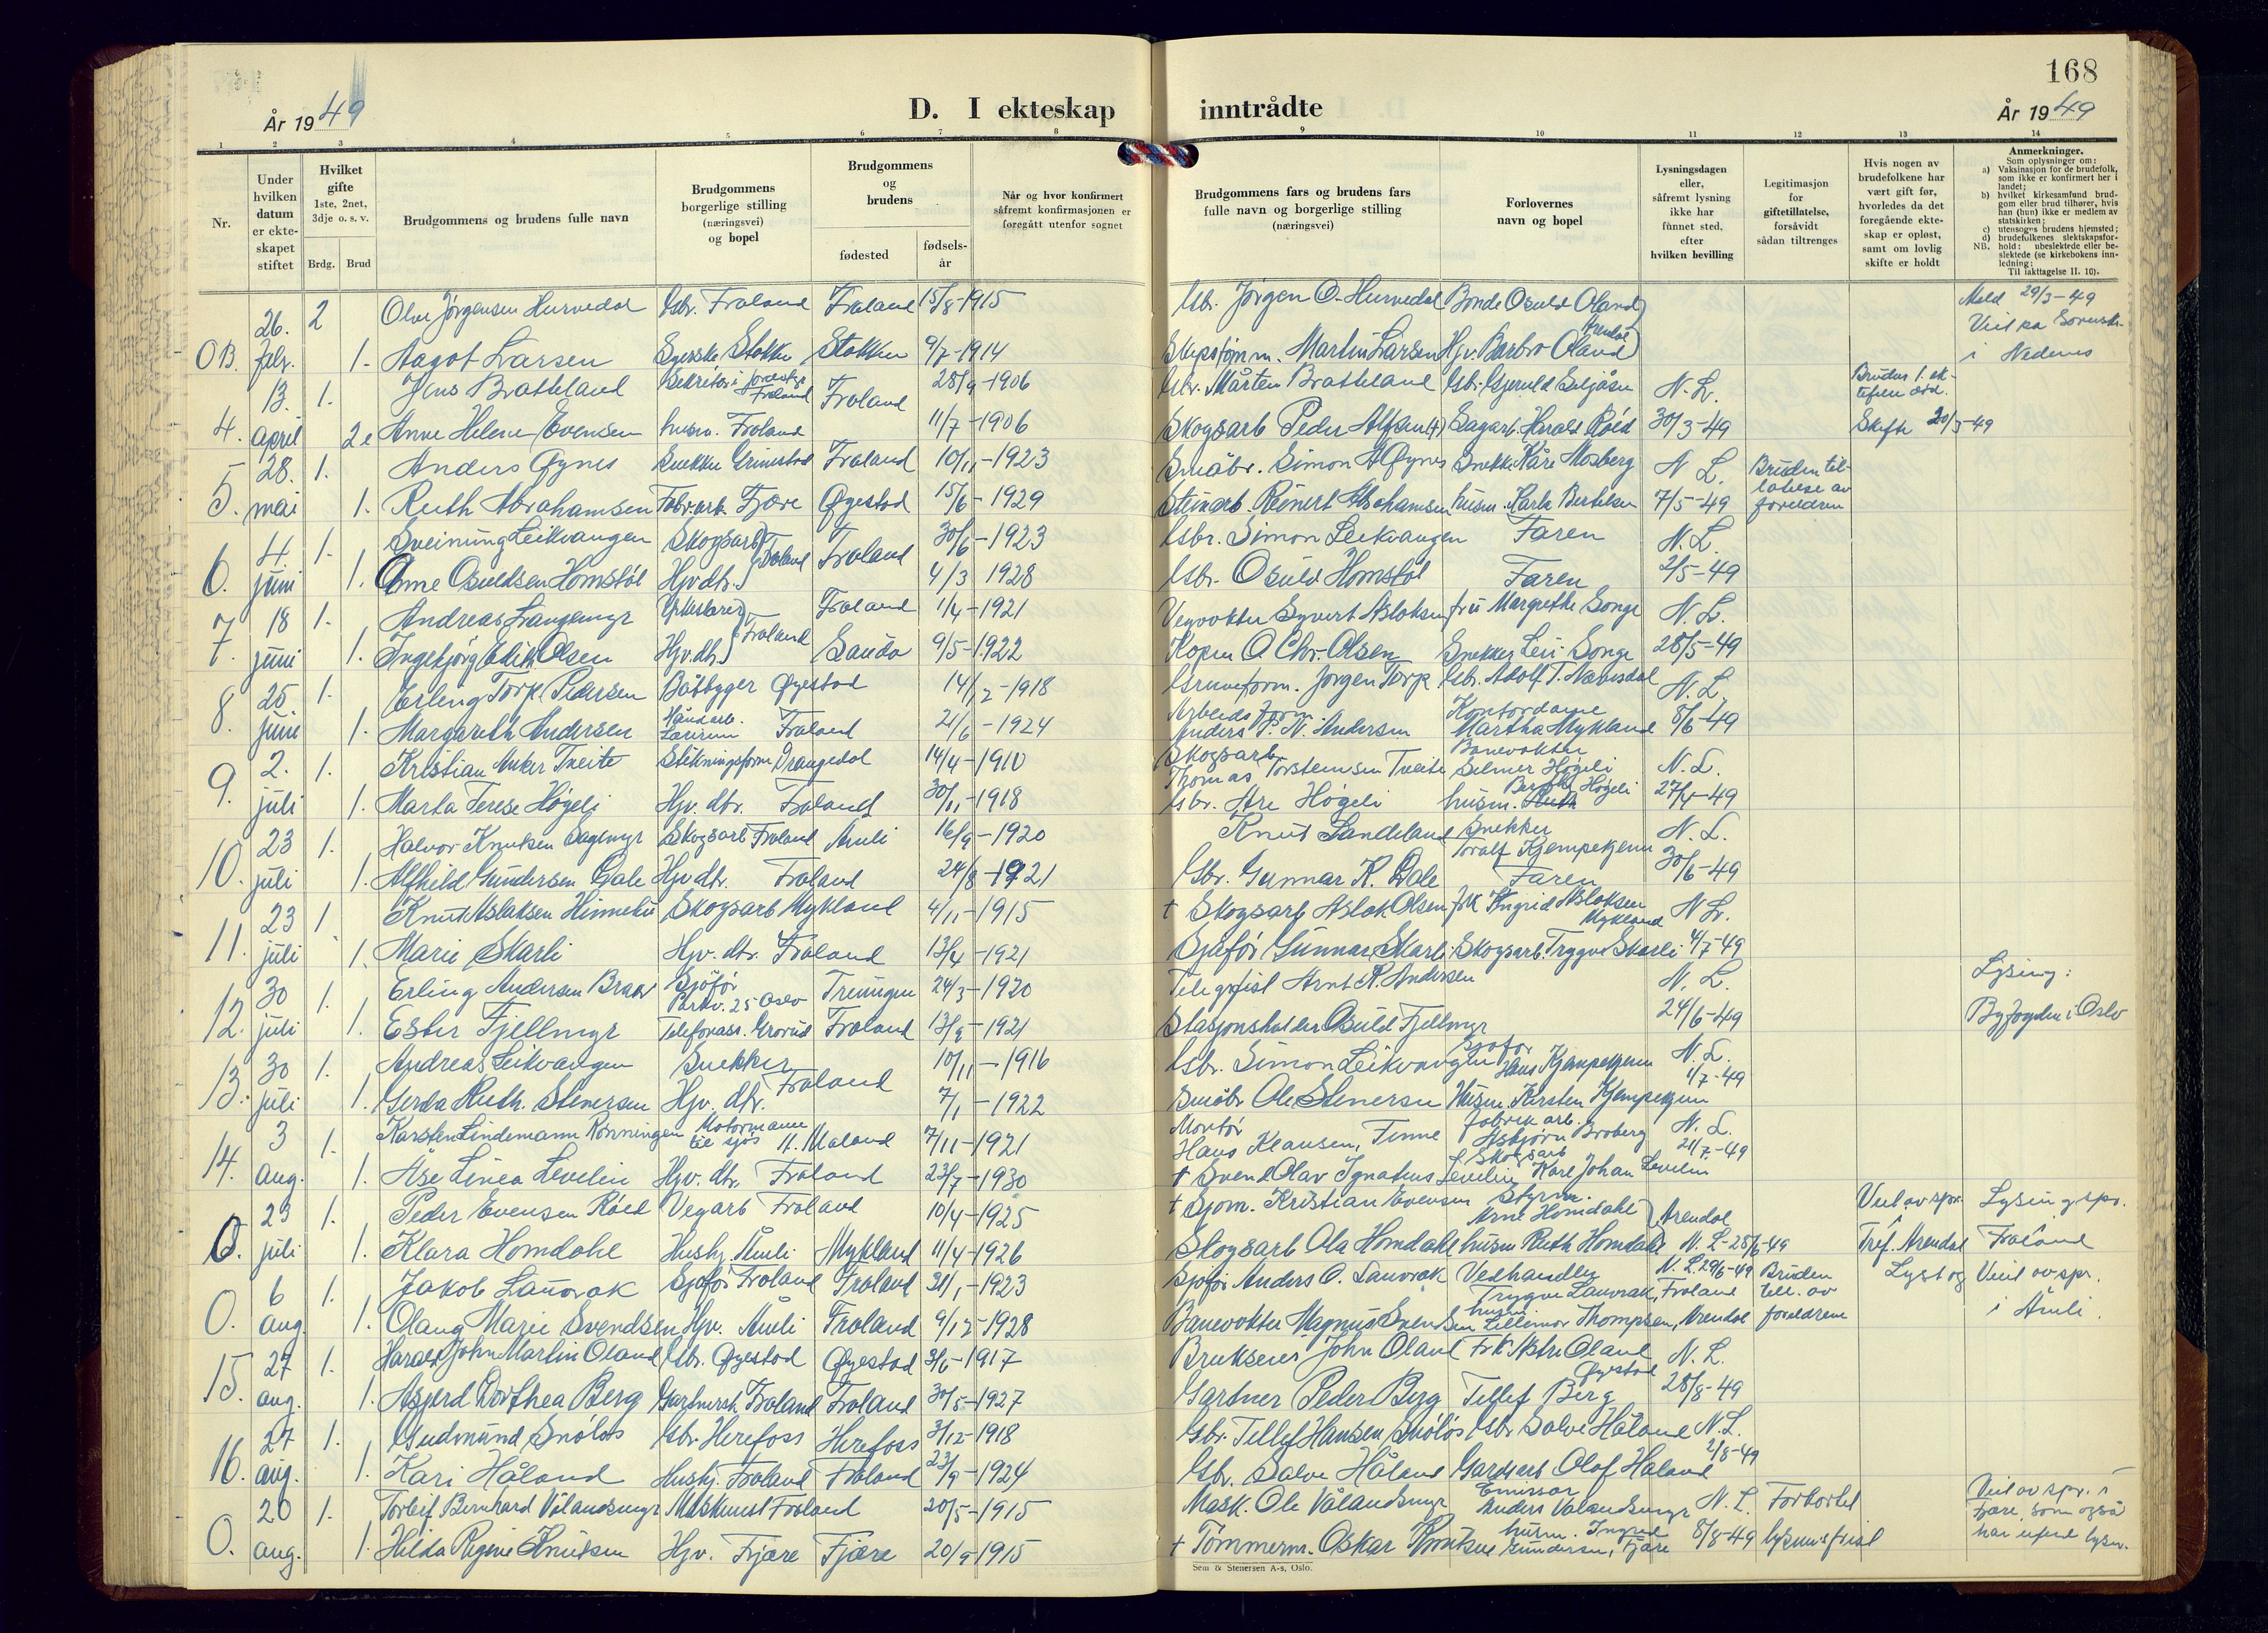 168
År 1949
D. I ekteskap inntrådte
År 1949
1 2 3 4 5 6 7 8 9 10 11 12 13 14
Nr.
Under hvilken datum er ekte-skapet stiftet
Hvilket gifte 1ste, 2net, 3dje o. s. v.
Brdg. Brud
Brudgommens og brudens fulle navn
Brudgommens borgerlige stilling (næringsvei) og bopel
Brudgommens og brudens
fødested
fødsels-år
Når og hvor konfirmert såfremt konfirmasjonen er foregått utenfor sognet
Brudgommens fars og brudens fars fulle navn og borgerlige stilling (næringsvei)
Forlovernes navn og bopel
Lysningsdagen eller, såfremt lysning ikke har funnet sted, efter hvilken bevilling
Legitimasjon for giftetillatelse, forsåvidt sådan tiltrenges
Hvis nogen av brudefolkene har vært gift før, hvorledes da det foregående ekte-skap er opløst, samt om lovlig skifte er holdt
Anmerkninger.
Som oplysninger om:
a) Vaksinasjon for de brudefolk, som ikke er konfirmert her i landet;
b) hvilket kirkesamfund brud-gom eller brud tilhører, hvis han (hun) ikke er medlem av statskirken;
c) utensogns brudens hjemsted;
d) brudefolkenes slektskapsfor-hold: ubeslektede eller be-slektede (se kirkebokens inn-ledning;
NB. Til iakttagelse II. 10).
OB. 26. febr. 2 Olav Jørgensen Hurvedal Gbr. Froland Froland 15/8-1915 Gbr. Jørgen O. Hurvedal Bonde Osuld Oland Meld 29/3-49
1. Aagot Larsen Syerske Stokken Stokken 9/7-1914 Skipstømm. Martin Larsen Hjv. Barbro Oland Arendal Viet i Nedenes
4. 13. april 1. Jens Bratteland Froland Froland 28/9-1906 Gbr. Mårten Bratteland N. L. Brudens 1. ek-
2. Anne Helene Evensen husm. Froland 11/7-1906 Skogsarb Peder Alfsen (+) Sagarb. Harald Røed 30/3-49 Skifte 20/3-49
5. 28. mai 1. Anders Øynes Snekker Grimstad Froland 10/11-1923 Småbr. Simon A Øynes Snekk. Kåre Mosberg N. L. Bruden til-
1. Ruth Abrahamsen Fabr.arb. Fjære Øyestad 15/6-1929 Steinarb. Reinert Abrahamsen husm. Bertelsen 7/5-49 latelse av foreldrene
6. 4 juni 1. Sveinung Leikvangen Skogsarb. Froland Froland 30/6-1923 Gbr. Simon Leikvangen Faren N. L.
1. Anne Osuldsen Homstøl Hjv. dtr. 4/3 1928 Gbr. Osuld Homstøl Faren 2/5-49
7. 18 juni 1. Andreas Langemyr Froland Froland 1/4-1921 Vegvokter Syvert Aslaksen fru Margrethe Songe N. L.
1. Ingebjørg Edith Olsen Hjv. dtr. Sauda 9/5-1922 O. Chr. Olsen Snekker Songe 28/5-49
8. 25 juni 1. Erling Torp Pedersen Båtbygger Øyestad 14/12-1918 Gruveform. Jørgen Torp Gbr. Adolf T. N. L.
1. Margareth Andersen Froland 21/6-1924 Anders Andersen Kontordame Martha Mykland 8/6-49
9. 2. juli 1. Kristian Anker Tveite Drangedal 14/4-1910 Skogsarb. Thomas Torsteinsen Tveite Banevokter Selmer Høgeli N. L.
1. Marta Terese Høgeli Hjv. dtr. Froland 30/11-1918 Gbr. Are Høgeli husm. Høgeli 27/4-49
10. 23 juli 1. Halvor Knutsen Skogsarb Froland Åmli 16/9-1920 Knut Landeland Snekker Toralf Kjempekjenn N. L.
1. Alfhild Gundersen Dale Hjv dtr. Froland 24/8-1921 Gbr. Gunnar K. Dale Faren 30/6-49
11. 23 juli 1. Knut Aslaksen Skogsarb Mykland 4/11-1915 + Skogsarb Aslak Olsen frk Ingrid Aslaksen Mykland N. L.
1. Marie Skarli Hjv. dtr. Froland 13/4-1921 Sjåfør Gunnar Skarli Skogsarb. Trygve Skarli 4/7-49
12. 30 juli 1. Erling Andersen Sjåfør Parkv. 25 Oslo Treungen 24/3-1920 Telegrafist Arnt Andersen N. L. Lysing:
1. Ester Fjellmyr Telefonass. Grorud Froland 13/9-1921 Stasjonsholder Osuld Fjellmyr 24/6-49 Byfogden i Oslo
13. 30 juli 1. Andreas Leikvangen Snekker Froland 10/11-1916 Gbr. Simon Leikvangen Sjåfør Hans Kjempekjenn N. L.
1. Gerda Ruth. Stenersen Hjv. dtr. 7/1-1922 Småbr. Ole Stenersen Husm. Kirsten Kjempekjenn 1/7-49
14. 3 aug. 1. Karsten Lindemann Rønningen Motormann til sjøs 7/11-1921 Montør Hans Klausen, Tinne fabrikarb. Asbjørn Broberg N. L.
1. Åse Linea Levelin Hjv. dtr. Froland 23/7-1930 + Svend Olav Ignatius Levelin Skogsarb Karl Johan Levelin 21/7-49
O. 23 juli 1. Peder Evensen Røed Vegarb Froland 10/4-1925 + Sjøm. Kristian Evensen Styrm. Arne Homdahl Arendal Viet av spr. Lysing spr.
1. Klara Homdahl Hushj. Åmli Mykland 11/4-1926 Skogsarb Ola Homdahl husm Ruth Homdahl N. L. 25/6-49 i Tref. Arendal Froland
O. 6 aug. 1. Jakob Lauvrak Sjåfør Froland Froland 31/1-1923 Sjåfør Anders O. Lauvrak Vedhandler Trygve Lauvrak, Froland N. L. 29/6-49 Bruden till. av Lyst og Viet av spr.
1. Olaug Marie Svendsen Hjv. Åmli Froland 9/12-1928 Banevokter Magnus Svendsen husm. Lillemor Thompsen, Arendal foreldrene i Åmli
15. 27 aug. 1. Harald John Martin Oland Gbr. Øyestad Øyestad 3/6-1917 Brukseier John Oland Frk. Oland Øyestad N. L.
1. Asgerd Dorthea Berg Froland Froland 30/5-1927 Gartner Peder Berg Tellef Berg 28/8-49
16. 27 aug. 1. Gudmund Snøløs Gbr. Herefoss Herefoss 3/12-1918 Gbr. Tellef Hansen Snøløs Gbr Salve Håland N. L.
1. Kari Håland Hushj. Froland Froland 23/9-1924 Gbr. Salve Håland Olaf Håland 2/8-49
O. 20 aug. 1. Torleif Bernhard Vålandsmyr Maskinist Froland 20/5-1915 Mask. Ole Vålandsmyr Emissær Anders Vålandsmyr N. L. Forkortet Viet av spr. i
1. Hilda Regine Knutsen Hjv. Fjære Fjære 20/9-1915 + Tømmerm. Oskar Knutsen husm. Ingrid Gundersen, Fjære 8/8-49 lysningsfrist Fjære, som også har utført lysn.
Sem & Stenersen A-s, Oslo.